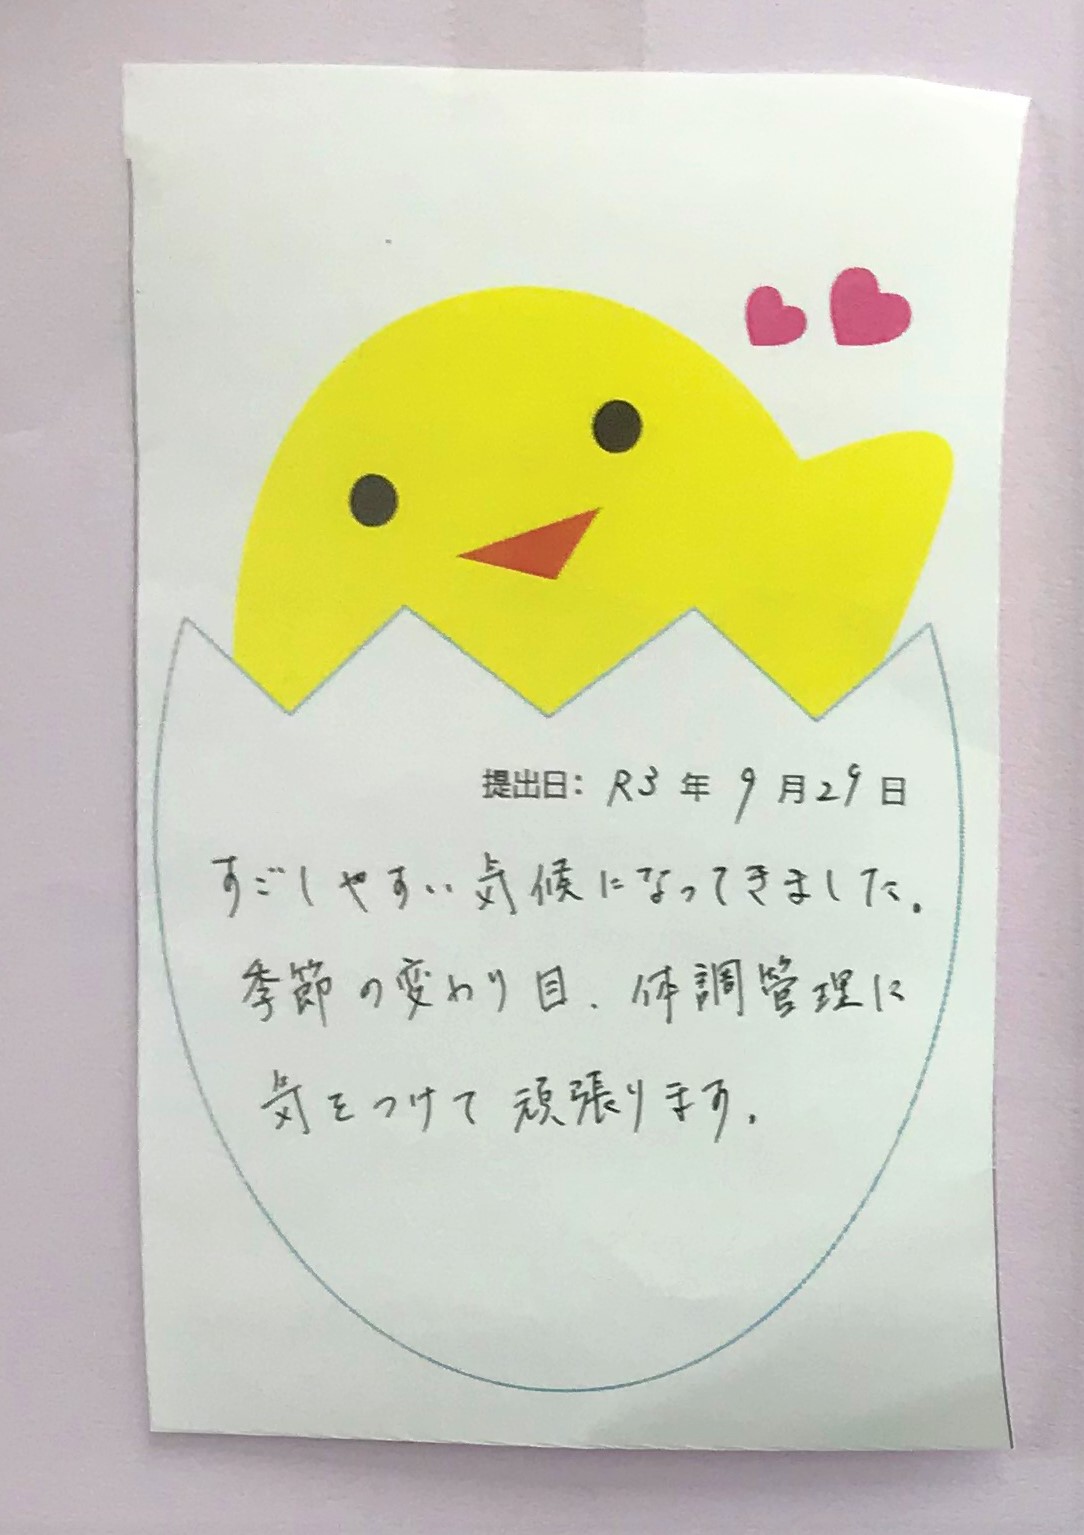 提出日： R3 年 9 月 29 日
すごしやすい気候になってきました。
季節の変わり目、体調管理に
気をつけて頑張ります。